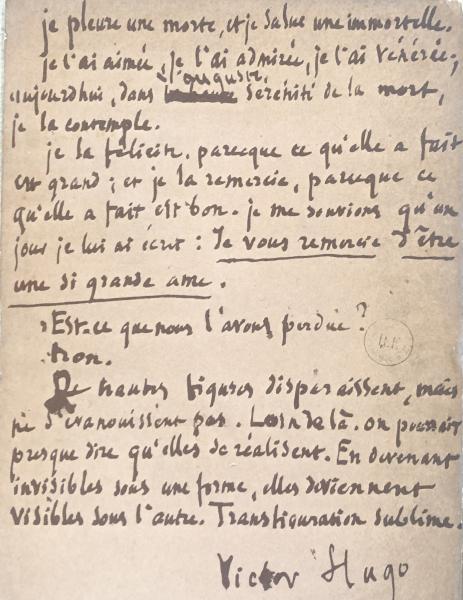 je pleure une morte, et je salue une immortelle.
je l'ai aimée, je l'ai admirée, je l'ai vénérée;
l'auguste
aujourd'hui, dans sérénité de la mort,
je la contemple.
je la félicite, parceque ce qu'elle a fait
est grand; et je la remercie, parceque ce
qu'elle a fait est bon. je me souviens qu'un
jour je lui ai écrit : Je vous remercie d'être
une si grande ame.
Est-ce que nous l'avons perdue?
Non.
De hautes figures disparaissent, mais
ne s'évanouissent pas. Loin de là. on pourrait
presque dire qu'elles se réalisent. En devenant
invisibles sous une forme, elles deviennent
visibles sous l'autre. Transfiguration sublime.
Victor Hugo